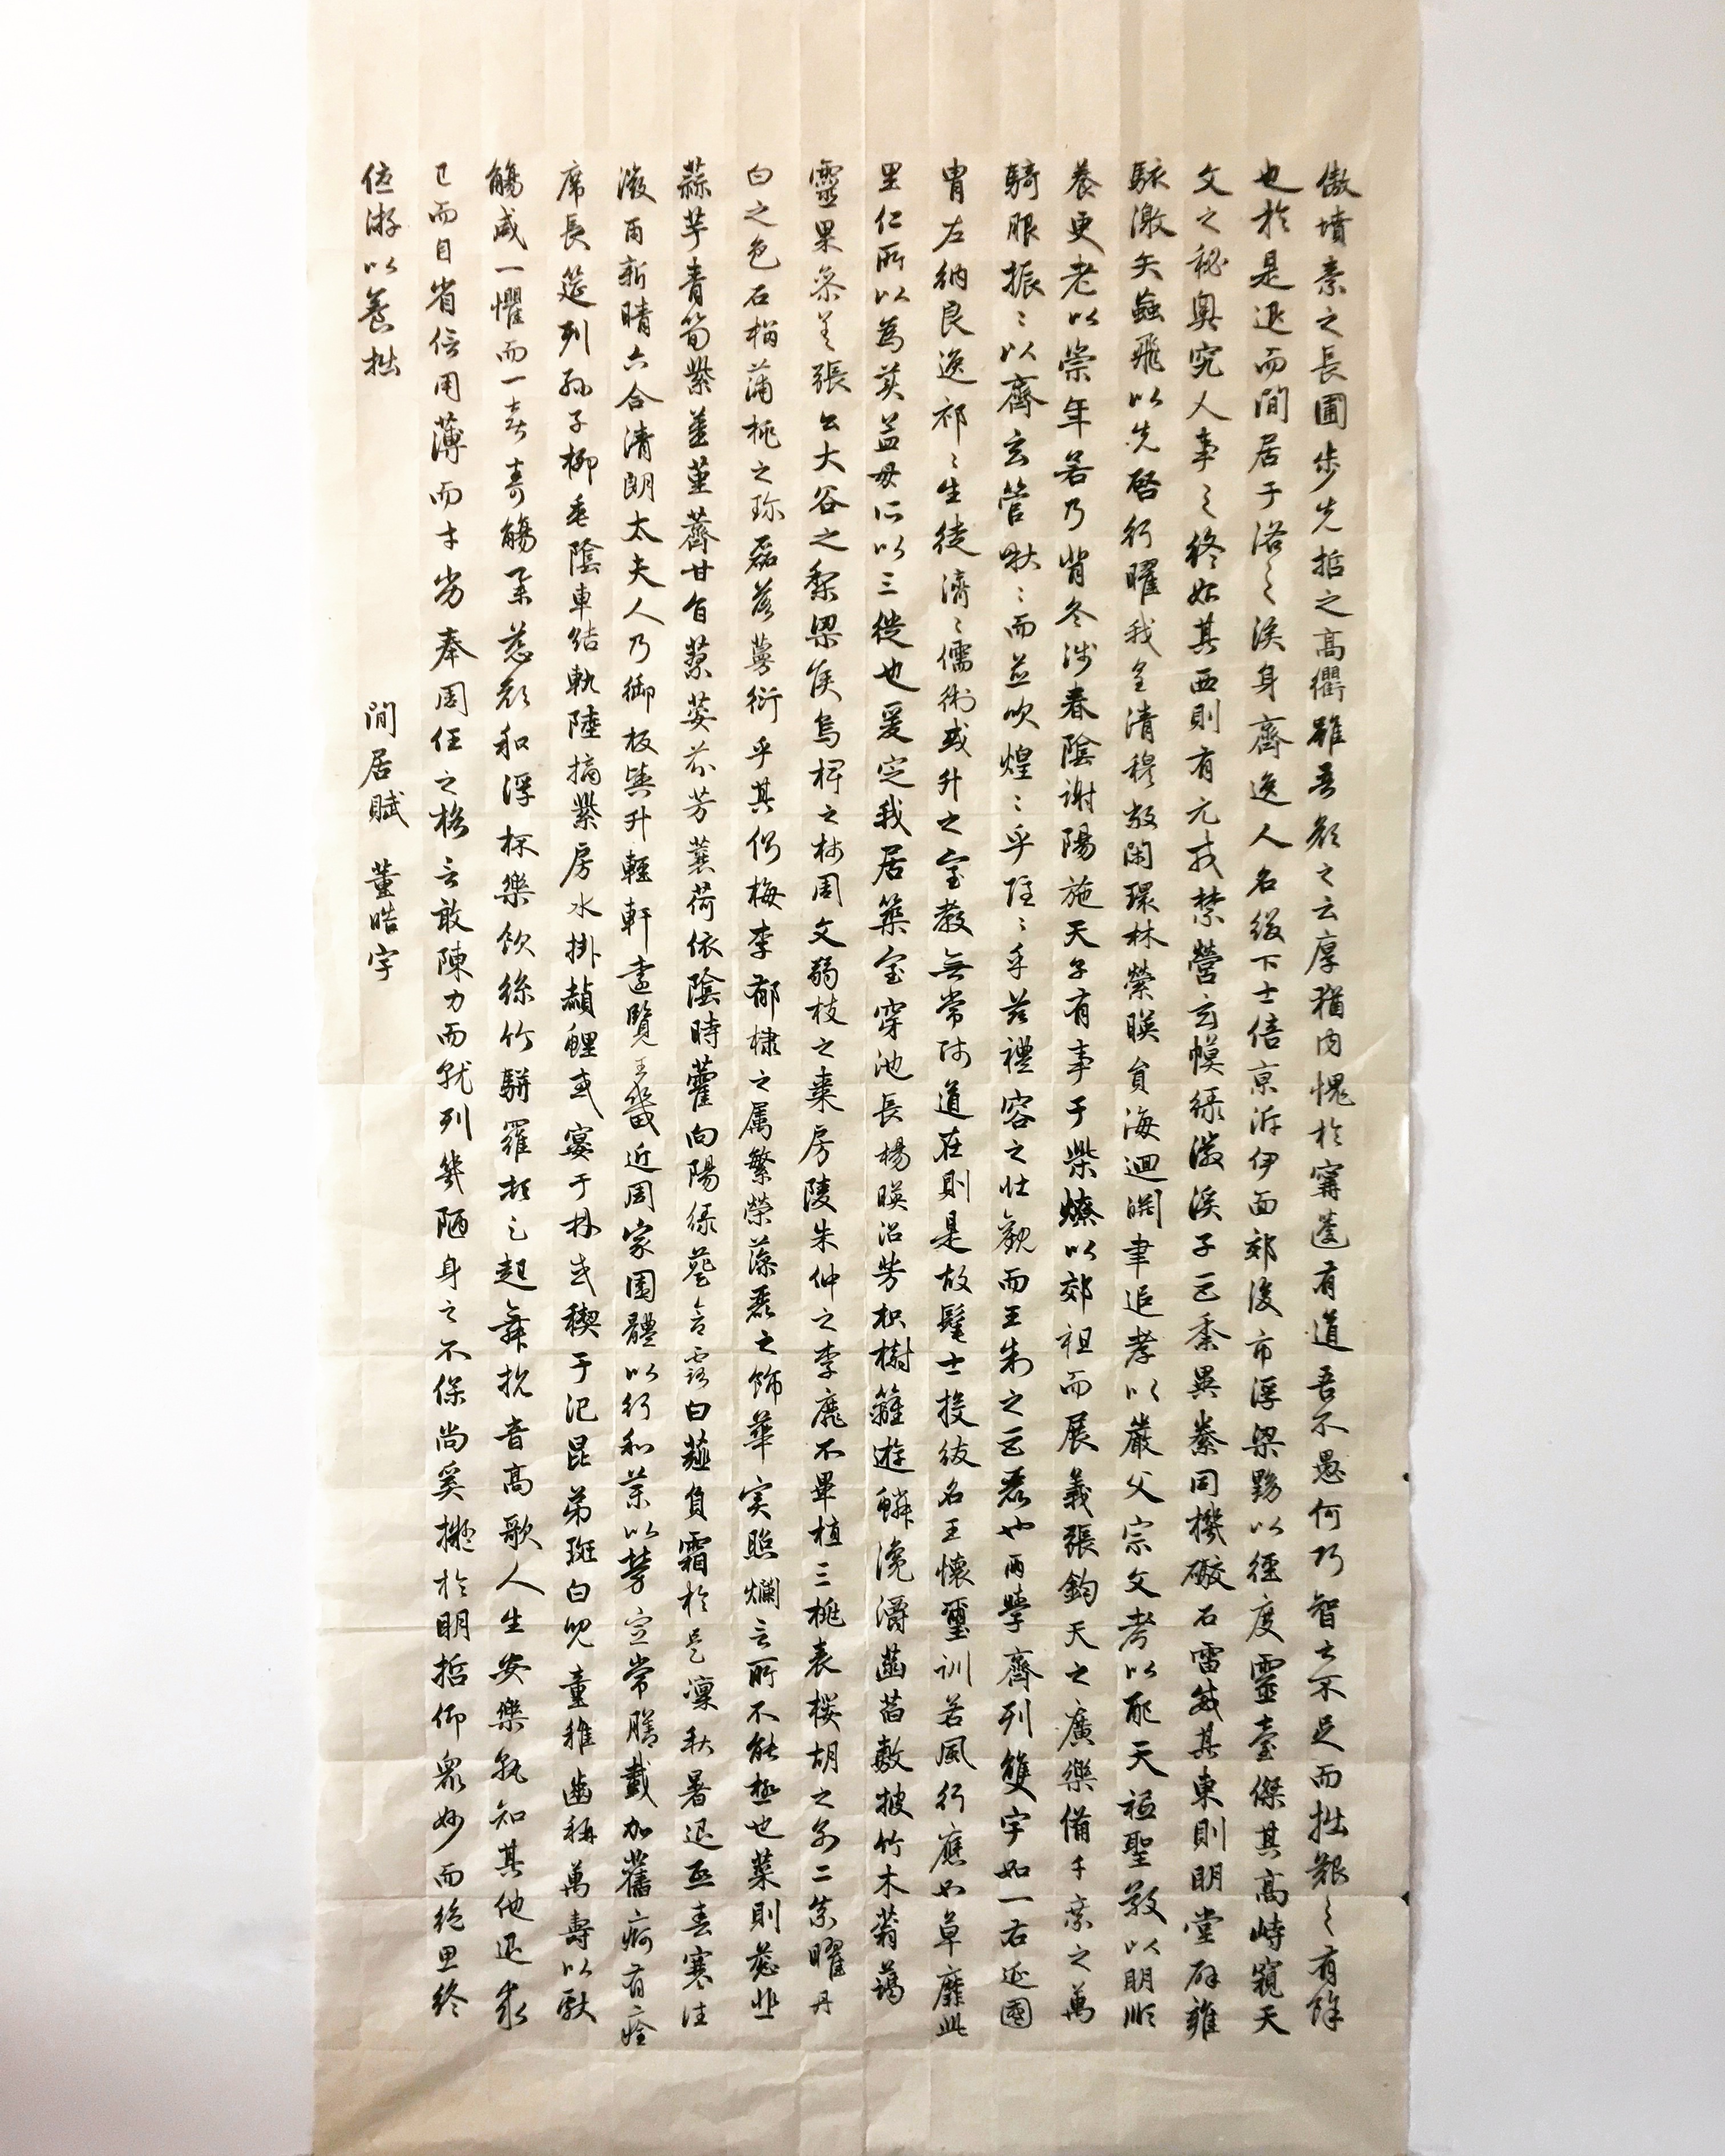 傲墳素之長圃步先哲之高衢雖吾顏之云厚猶內愧於甯蘧有道吾不愚何巧智之不足而拙艱之有餘
也於是退而閒居于洛之涘身齊逸人名綴下士倍京泝伊面郊後市浮梁黝以徑度靈臺傑其高峙窺天
文之秘奧究人事之終始其西則有元戎禁營玄幙綠徽溪子巨黍異絭同機礮石雷駭其東則明堂辟雍
駭激矢蝱飛以先啓行曜我皇清穆敞閑環林縈暎負海迴淵聿追孝以嚴父宗文考以配天祗聖敬以明順
養更老以崇年若乃背冬涉春陰謝陽施天子有事于柴燎以郊祖而展義張鈞天之廣樂備千乘之萬
騎服振々以齊玄管啾々而並吹煌々乎隱々乎茲禮容之壯觀而王制之巨麗也兩學齊列雙宇如一右延國
胄左納良逸祁々生徒濟々儒術或升之室教無常師道在則是故髦士投紱名王懷璽訓若風行應如草靡此
里仁所以為美孟母所以三徙也爰定我居築室穿池長楊暎沼芳枳樹籬遊鱗瀺灂菡萏敷披竹木蓊藹
靈果參差張公大谷之梨梁侯烏椑之柿周文弱枝之棗房陵朱仲之李靡不畢植三桃表櫻胡之別二柰曜丹
白之色石榴蒲桃之珍磊落蔓衍乎其側梅李郁棣之属繁榮藻麗之飾華实照爛言所不能極也菜則葱韭
蒜芋青筍紫薑堇薺甘旨蓼荽芬芳蘘荷依陰時藿向陽綠葵含露白薤負霜於是凜秋暑退熙春寒往
微雨新晴六合清朗太夫人乃御板輿升輕軒遠覽王畿近周家園體以行和藥以勞宣常膳載加舊痾有痊
席長筵列孫子柳垂陰車結軌陸摘紫房水掛赬鯉或宴于林或禊于汜昆弟斑白兒童稚齒稱萬壽以獻
觴咸一懼而一喜壽觴舉慈顏和浮杯樂飲絲竹駢羅頓足起舞抗音高歌人生安樂孰知其他退求
己而自省信用薄而才劣奉周任之格言敢陳力而就列幾陋身之不保尚奚擬於明哲仰衆妙而絕思終
優游以養拙
閒居賦 董皓宇